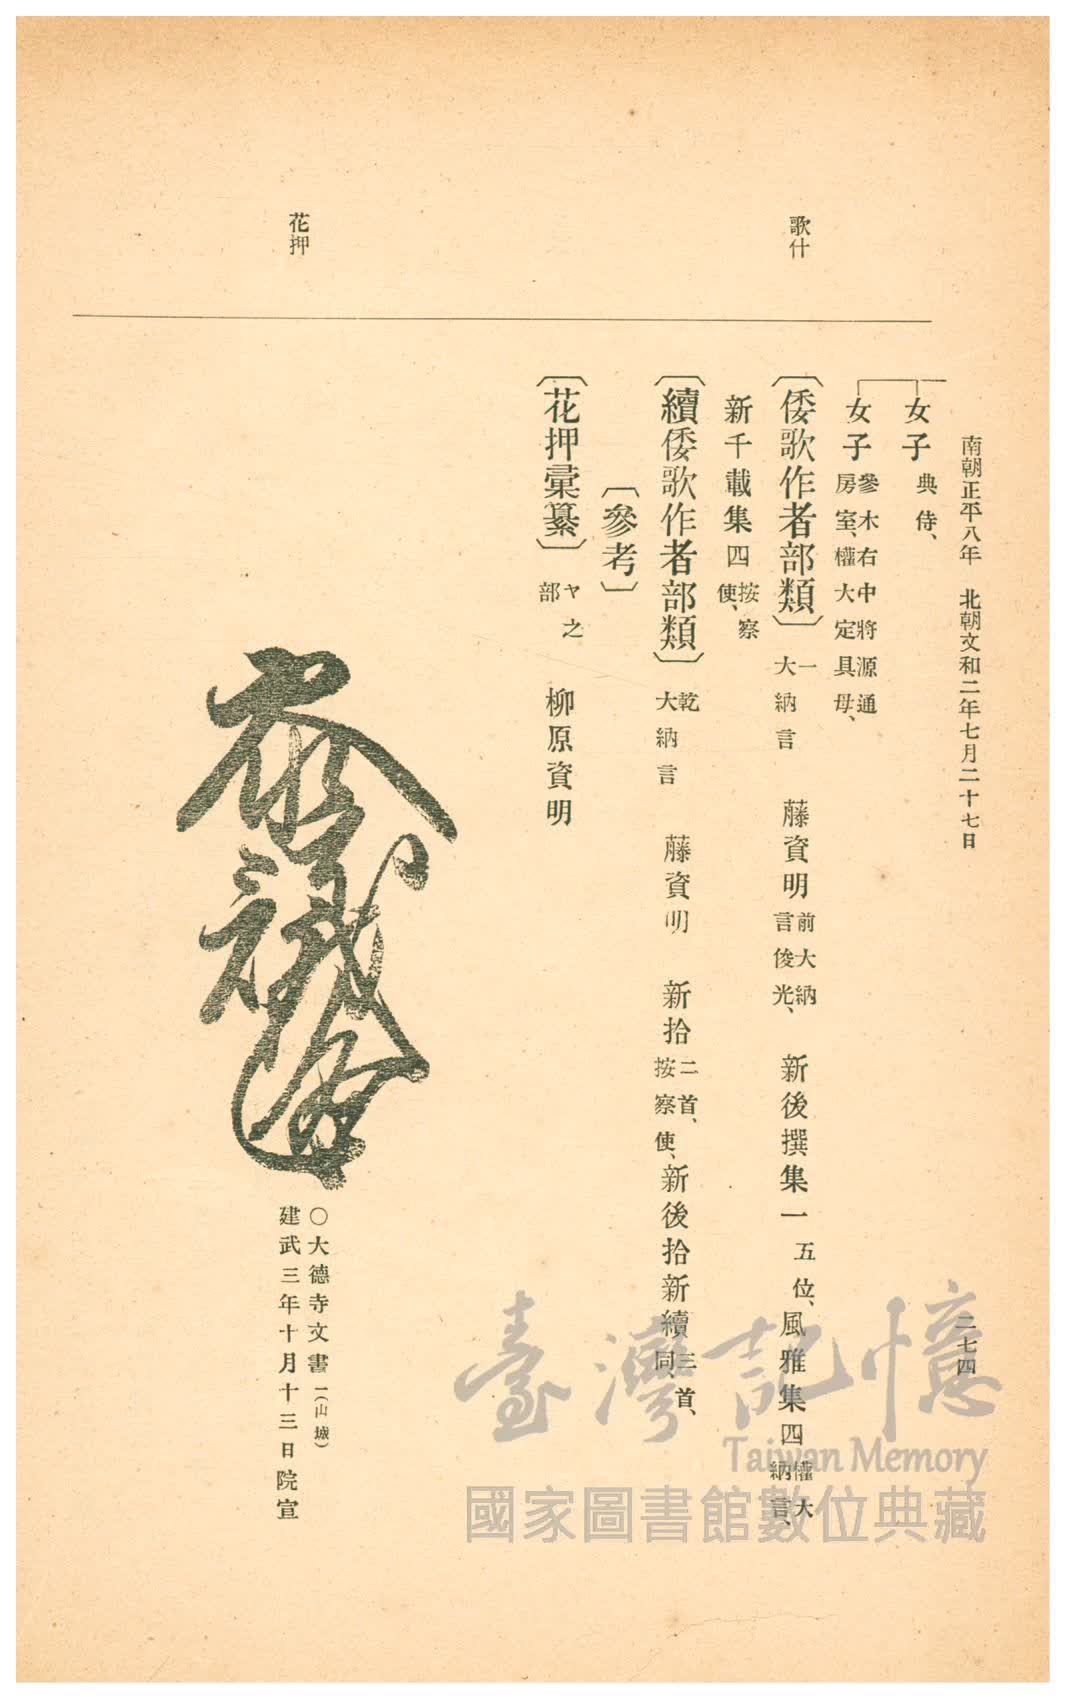 南朝正平八年 北朝文和二年七月二十七日
二七四
歌什
花押
女子 典侍、
女子 參木右中將源通
房室、權大定具母、
〔倭歌作者部類〕 一
大納言 藤資明 前大納
言俊光、 新後撰集一 五位、 風雅集四 權大
納言、
新千載集四 按察
使、
〔續倭歌作者部類〕 乾
大納言 藤資明 新拾 二首、
按察使、 新後拾新續 三首、
同、
〔參考〕
〔花押彙纂〕 ヤ之
部 柳原資明
〇大德寺文書 一(山城)
建武三年十月十三日院宣
臺灣記憶
Taiwan Memory
國家圖書館數位典藏